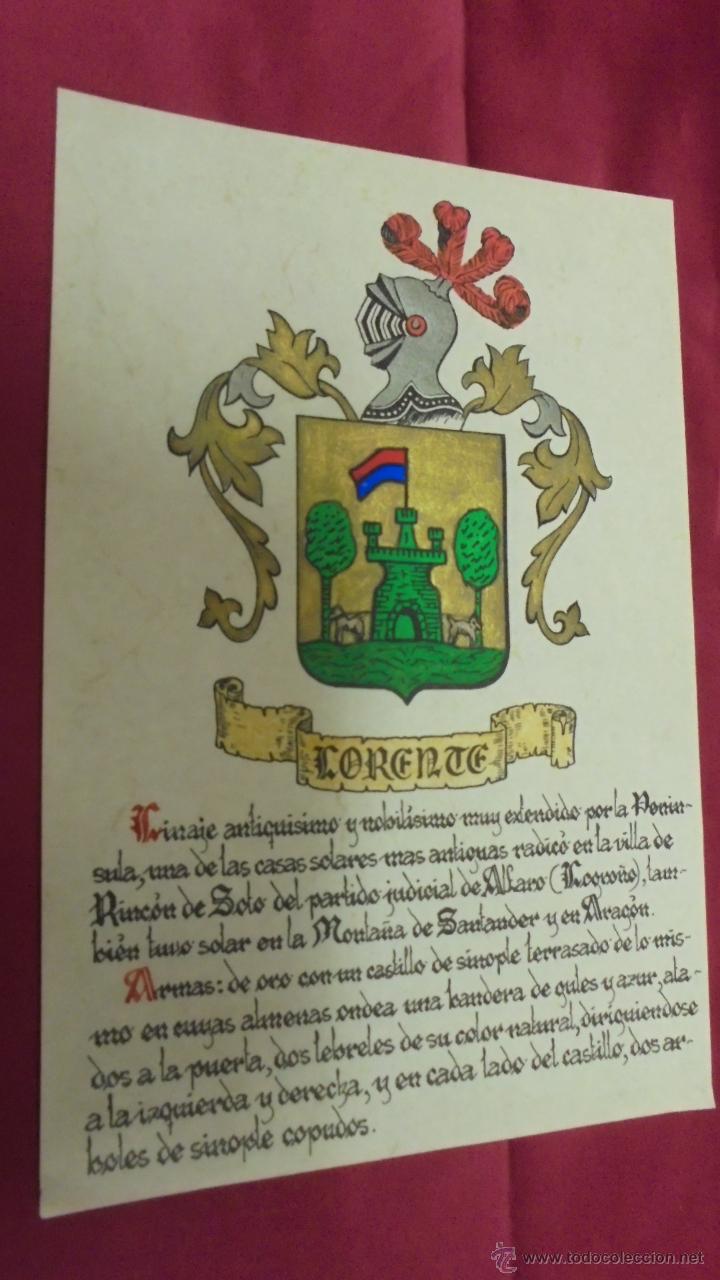 LORENTE
Linaje antiquisimo y nobilísimo muy extendido por la Penin-
sula, una de las casas solares mas antiguas radicó en la villa de
Rincón de Soto del partido judicial de Alfaro (Logroño), tam-
bién tuvo solar en la Montaña de Santander y en Aragón.
Armas: de oro con un castillo de sinople terrasado de lo mis-
mo en cuyas almenas ondea una bandera de gules y azur, ata-
dos a la puerta, dos lebreles de su color natural, diriguiendose
a la izquierda y derecha, y en cada lado del castillo, dos ar-
boles de sinople copudos.
www.todocoleccion.net